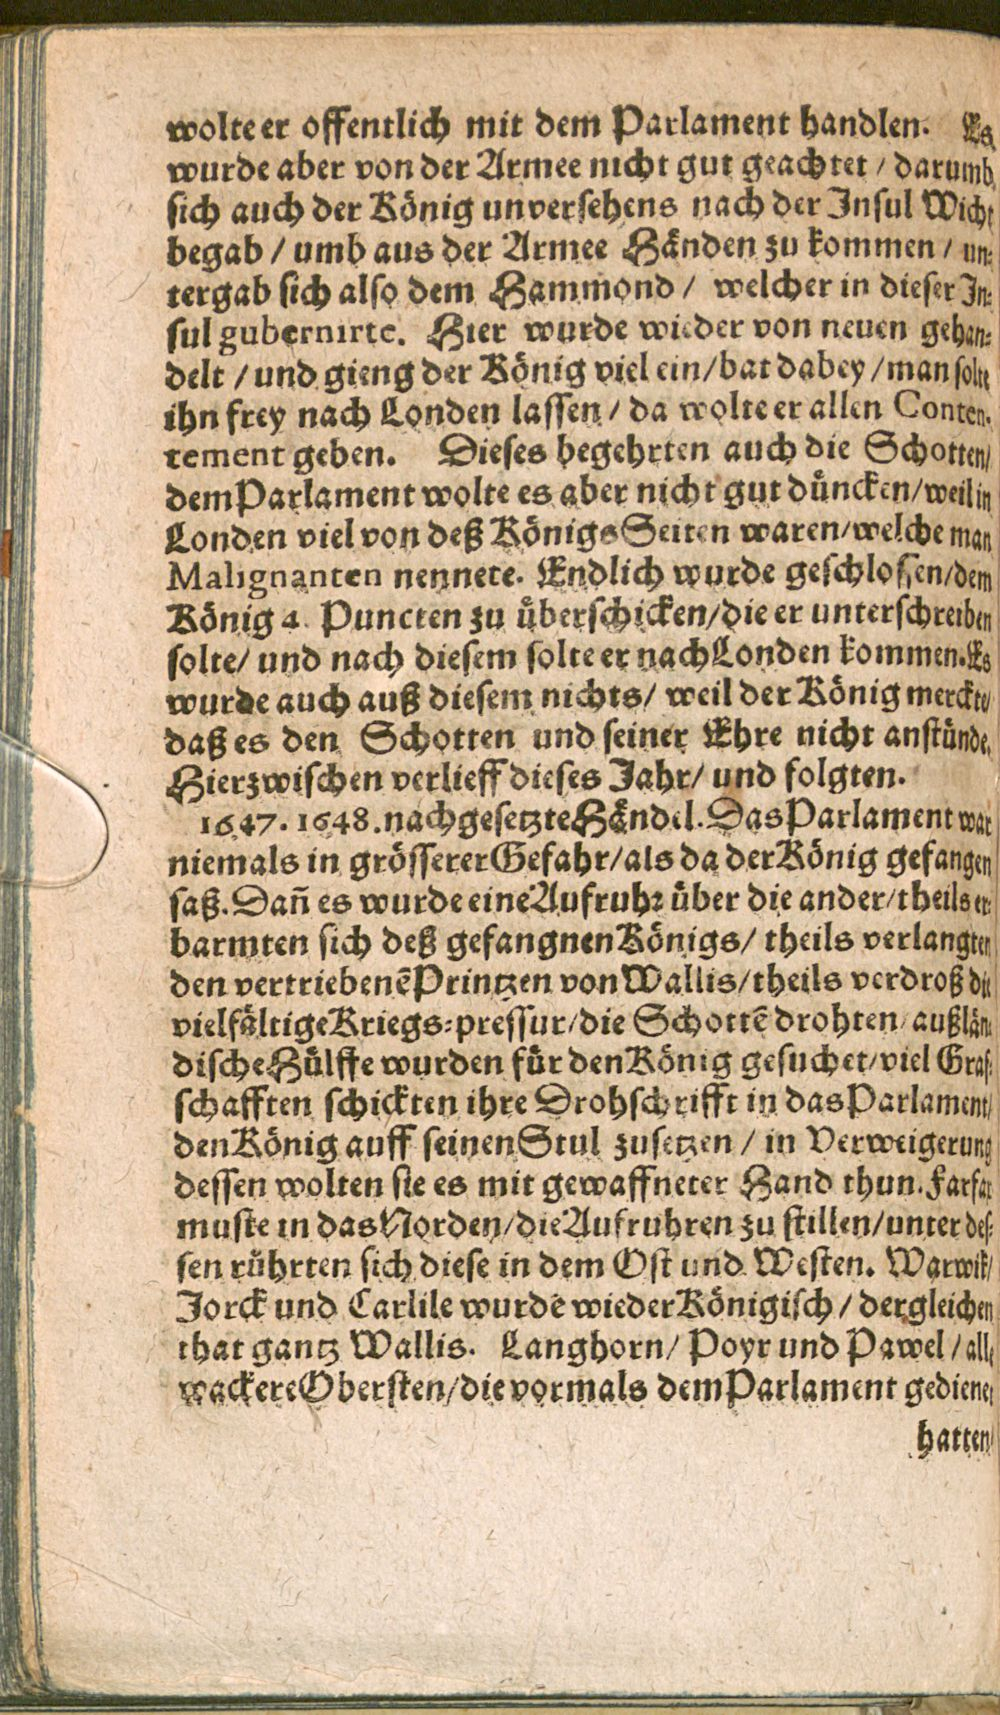 wolte er offentlich mit dem Parlament handlen. Es
wurde aber von der Armee nicht gut geachtet / darumb
sich auch der König unversehens nach der Insul Wicht
begab / umb aus der Armee Händen zu kommen / un-
tergab sich also dem Hammond / welcher in dieser In-
sul gubernirte. Hier wurde wieder von neuen gehan-
delt / und gieng der König viel ein / bat dabey / man solte
ihn frey nach Londen lassen / da wolte er allen Conten-
tement geben. Dieses begehrten auch die Schotten /
dem Parlament wolte es aber nicht gut düncken / weil in
Londen viel von deß Königs Seiten waren / welche man
Malignanten nennete. Endlich wurde geschlossen / dem
König 4. Puncten zu überschicken / die er unterschreiben
solte / und nach diesem solte er nach Londen kommen. Es
wurde auch auß diesem nichts / weil der König merckte /
daß es den Schotten und seiner Ehre nicht anstünde.
Hierzwischen verlieff dieses Jahr / und folgten.
1647. 1648. nachgesetzte Händel. Das Parlament war
niemals in grösserer Gefahr / als da der König gefangen
saß. Dañ es wurde eine Aufruhr über die ander / theils er-
barmten sich deß gefangnen Königs / theils verlangten
den vertriebenē Printzen von Wallis / theils verdroß die
vielfältige Kriegs-pressur / die Schottē drohten / außlän-
dische Hülffe wurden für den König gesuchet / viel Graf-
schafften schickten ihre Drohschrifft in das Parlament /
den König auff seinen Stul zusetzen / in Verweigerung
dessen wolten sie es mit gewaffneter Hand thun. Farfax
muste in das Norden / die Aufruhren zu stillen / unter des-
sen rührten sich diese in dem Ost und Westen. Warwik /
Jorck und Carlile wurde wieder Königisch / dergleichen
that gantz Wallis. Langhorn / Poyr und Pawel / alle
wackere Obersten / die vormals dem Parlament gedienet
hatten /